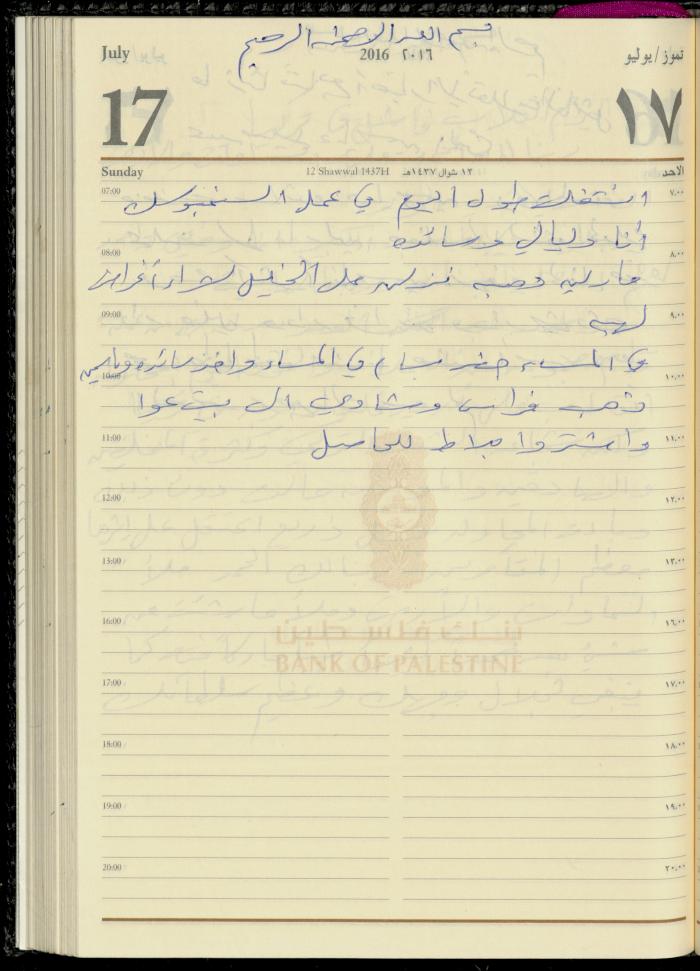 بسم الله الرحمن الرحيم
July 2016 ٢٠١٦ تموز/يوليو
17 ١٧
Sunday 12 Shawwal 1437H ١٢ شوال ١٤٣٧هـ الاحد
07:00 اشتغلت طول اليوم في عمل السنمبوسك ٧:٠٠
أنا وليالي وسائده
08:00 ٨:٠٠
مارلين وهبه نزلن على الخليل لشراء أغراض
09:00 لهبه ٩:٠٠
في المساء حضر بسام في المساء واخذ سائده
10:00 ١٠:٠٠
ذهب فراس وشادي الى بيت عوا
11:00 واشتروا بلاط للحاصل ١١:٠٠
12:00 ١٢:٠٠
13:00 ١٣:٠٠
16:00 ١٦:٠٠
بنك فلسطين
BANK OF PALESTINE
17:00 ١٧:٠٠
18:00 ١٨:٠٠
19:00 ١٩:٠٠
20:00 ٢٠:٠٠